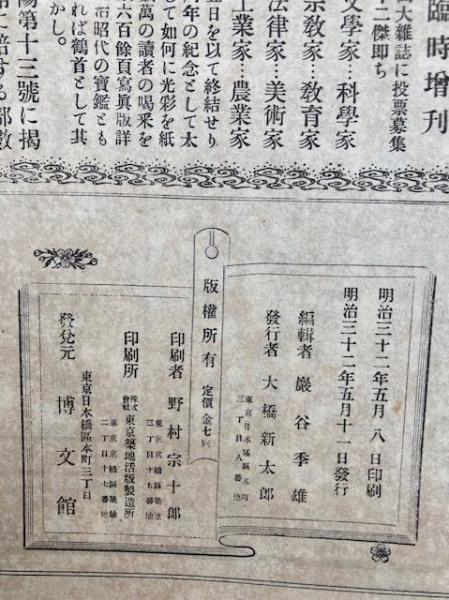 臨時增刊
大雜誌に投票募集
二傑即ち
文學家…科學家
宗敎家…敎育家
法律家…美術家
工業家…農業家
五日を以て終結せり
年の紀念として太
して如何に光彩を紙
萬の讀者の喝釆を
六百餘頁寫眞版詳
治昭代の寶鑑とも
れば鶴首として其
かし。
陽第十三號に揭
に倍する部數
明治三十二年五月八日印刷
明治三十二年五月十一日發行
編輯者 巖谷季雄
東京日本橋區本町三丁目八番地
發行者 大橋新太郎
版權所有 定價金七錢
東京京橋區築地三丁目十七番地
印刷者 野村宗十郎
東京京橋區築地二丁目十七番地
印刷所 株式會社 東京築地活版製造所
東京日本橋區本町三丁目
發兌元 博文館